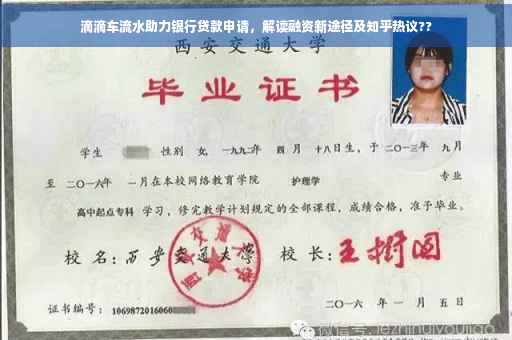 滴滴车流水助力银行贷款申请，解读融资新途径及知乎热议??
西安交通大学
毕业证书
学生 性别 女, 一九九二年 四月 十八日生, 于 二〇一三年 九月
至 二〇一六年 一月在本校网络教育学院 护理学 专业
高中起点专科 学习, 修完教学计划规定的全部课程, 成绩合格, 准予毕业。
校名: 西安交通大学 校长: 王树国
西安交通大学
证书编号: 1069872016060 二〇一六年 一月 五日
微信号: jezhihuiyoujiao